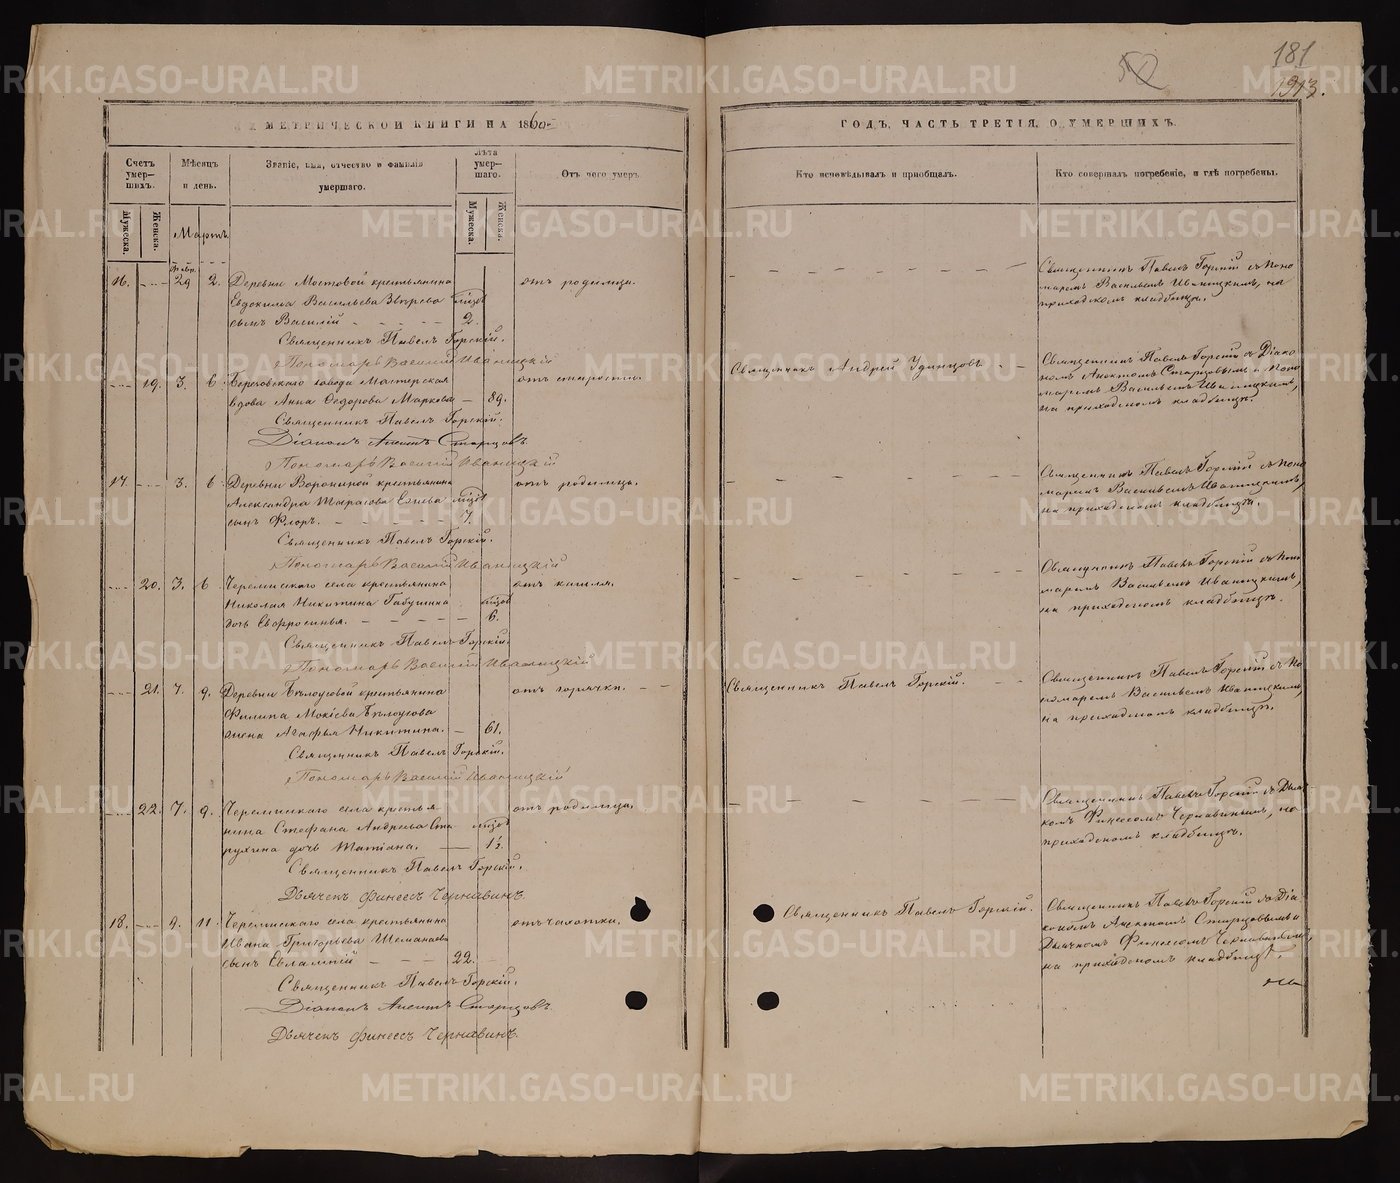 181
193.
МЕТРИЧЕСКОЙ КНИГИ НА 1860
ГОДЪ, ЧАСТЬ ТРЕТІЯ, О УМЕРШИХЪ.
Счетъ умершихъ.
Мѣсяцъ и день.
Званіе, имя, отчество и фамилія умершаго.
Лѣта умершаго.
Отъ чего умеръ.
Кто исповѣдывалъ и пріобщалъ.
Кто совершалъ погребеніе, и гдѣ погребены.
Мужеска.
Женска.
Мартъ
Мужеска.
Женска.
Февр.
16. 29 2. Деревни Мостовой крестьянина отъ родимца.
Евдокима Васильева Звѣрева мѣсяц
сынъ Василій 2.
Священникъ Павелъ Горскій.
Пономарь Василій Иваницкій
Священникъ Павелъ Горскій съ Поно
маремъ Васильемъ Иваницкимъ, на
приходскомъ кладбищѣ.
19. 3. 6 Береговскаго завода Мастерская отъ старости.
вдова Анна Федорова Маркова 89.
Священникъ Павелъ Горскій.
Діаконъ Анектъ Старцовъ.
Пономарь Василій Иваницкій
Священникъ Андрей Удинцовъ
Священникъ Павелъ Горскій съ Діако
номъ Анектомъ Старцовымъ и Поно
маремъ Васильемъ Иваницкимъ,
на приходскомъ кладбищѣ.
17. 3. 6 Деревни Ворониной крестьянина отъ родимца.
Александра Тарасова Елиева
сынъ Флоръ. 7.
Священникъ Павелъ Горскій.
Пономарь Василій Иваницкій
Священникъ Павелъ Горскій съ Поно
маремъ Васильемъ Иваницкимъ,
на приходскомъ кладбищѣ.
20. 3. 6 Черемисскаго села крестьянина отъ кашля.
Николая Никитина Бабушкина
дочь Евфросинья. 6.
Священникъ Павелъ Горскій.
Пономарь Василій Иваницкій
Священникъ Павелъ Горскій съ Поно
маремъ Васильемъ Иваницкимъ,
на приходскомъ кладбищѣ.
21. 7. 9. Деревни Бѣлоусовой крестьянина отъ горячки.
Филипа Мокіева Бѣлоусова
жена Агафья Никитина. 61.
Священникъ Павелъ Горскій.
Пономарь Василій Иваницкій
Священникъ Павелъ Горскій.
Священникъ Павелъ Горскій съ По
номаремъ Васильемъ Иваницкимъ,
на приходскомъ кладбищѣ.
22. 7. 9. Черемисскаго села крестья отъ родимца.
нина Стефана Андреева Ста
рухина дочь Татіана. 1½.
Священникъ Павелъ Горскій.
Дьячекъ Финеесъ Чернавинъ.
Священникъ Павелъ Горскій съ Дьяч
комъ Финеесомъ Чернавинымъ, на
приходскомъ кладбищѣ.
18. 9. 11. Черемисскаго села крестьянина отъ чахотки.
Ивана Григорьева Шеманаева
сынъ Евлампій 22.
Священникъ Павелъ Горскій.
Діаконъ Анектъ Старцовъ.
Дьячекъ Финеесъ Чернавинъ.
Священникъ Павелъ Горскій.
Священникъ Павелъ Горскій съ Діа
кономъ Анектомъ Старцовымъ и
Дьячкомъ Финеесомъ Чернавинымъ,
на приходскомъ кладбищѣ.
METRIKI.GASO-URAL.RU